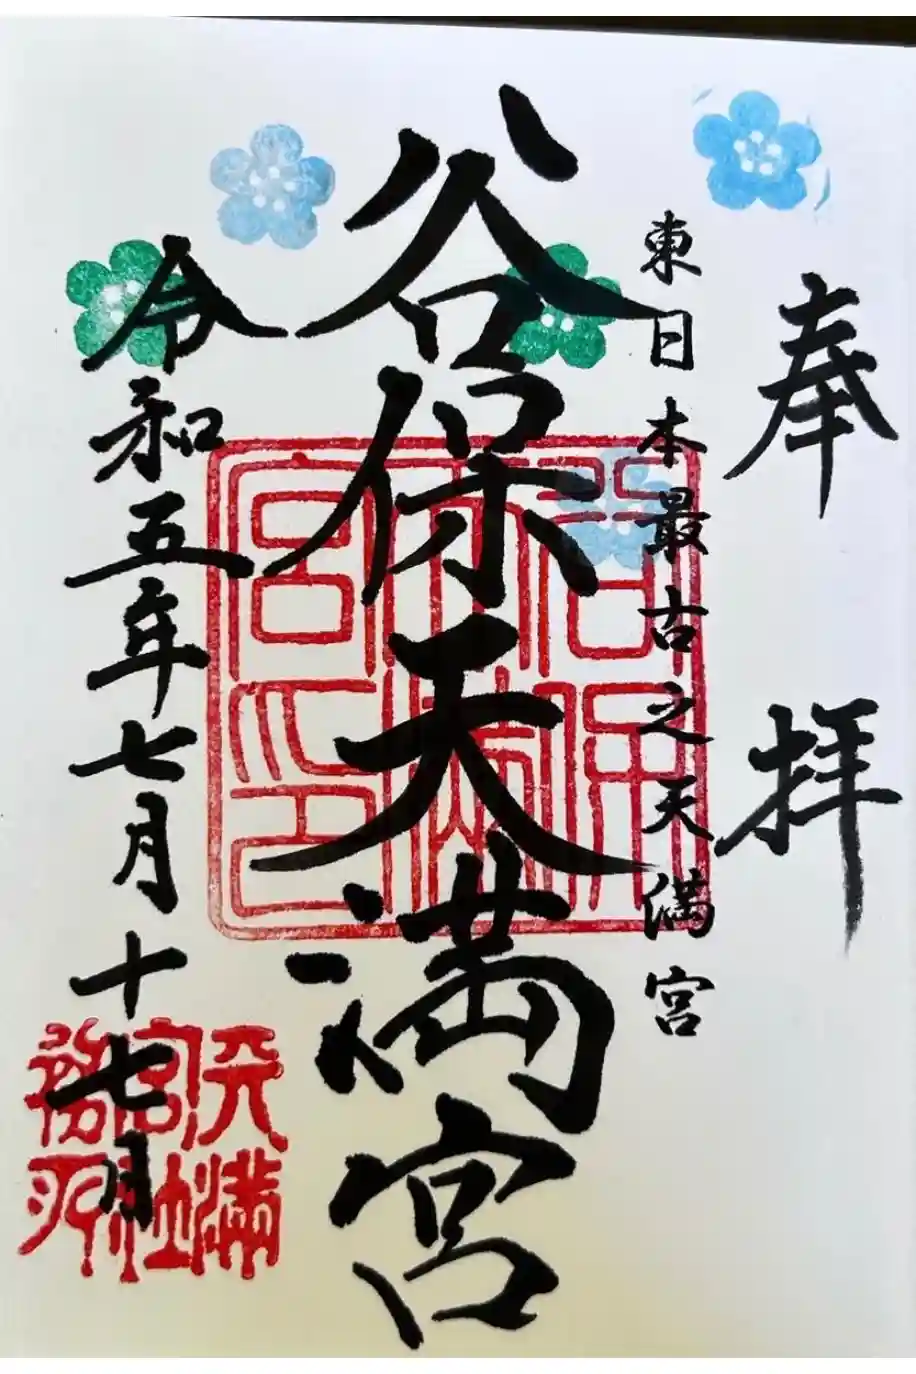 奉拝
東日本最古之天満宮
谷保天満宮
谷保
天満
宮印
令和五年七月十七月
天満
宮社
務所